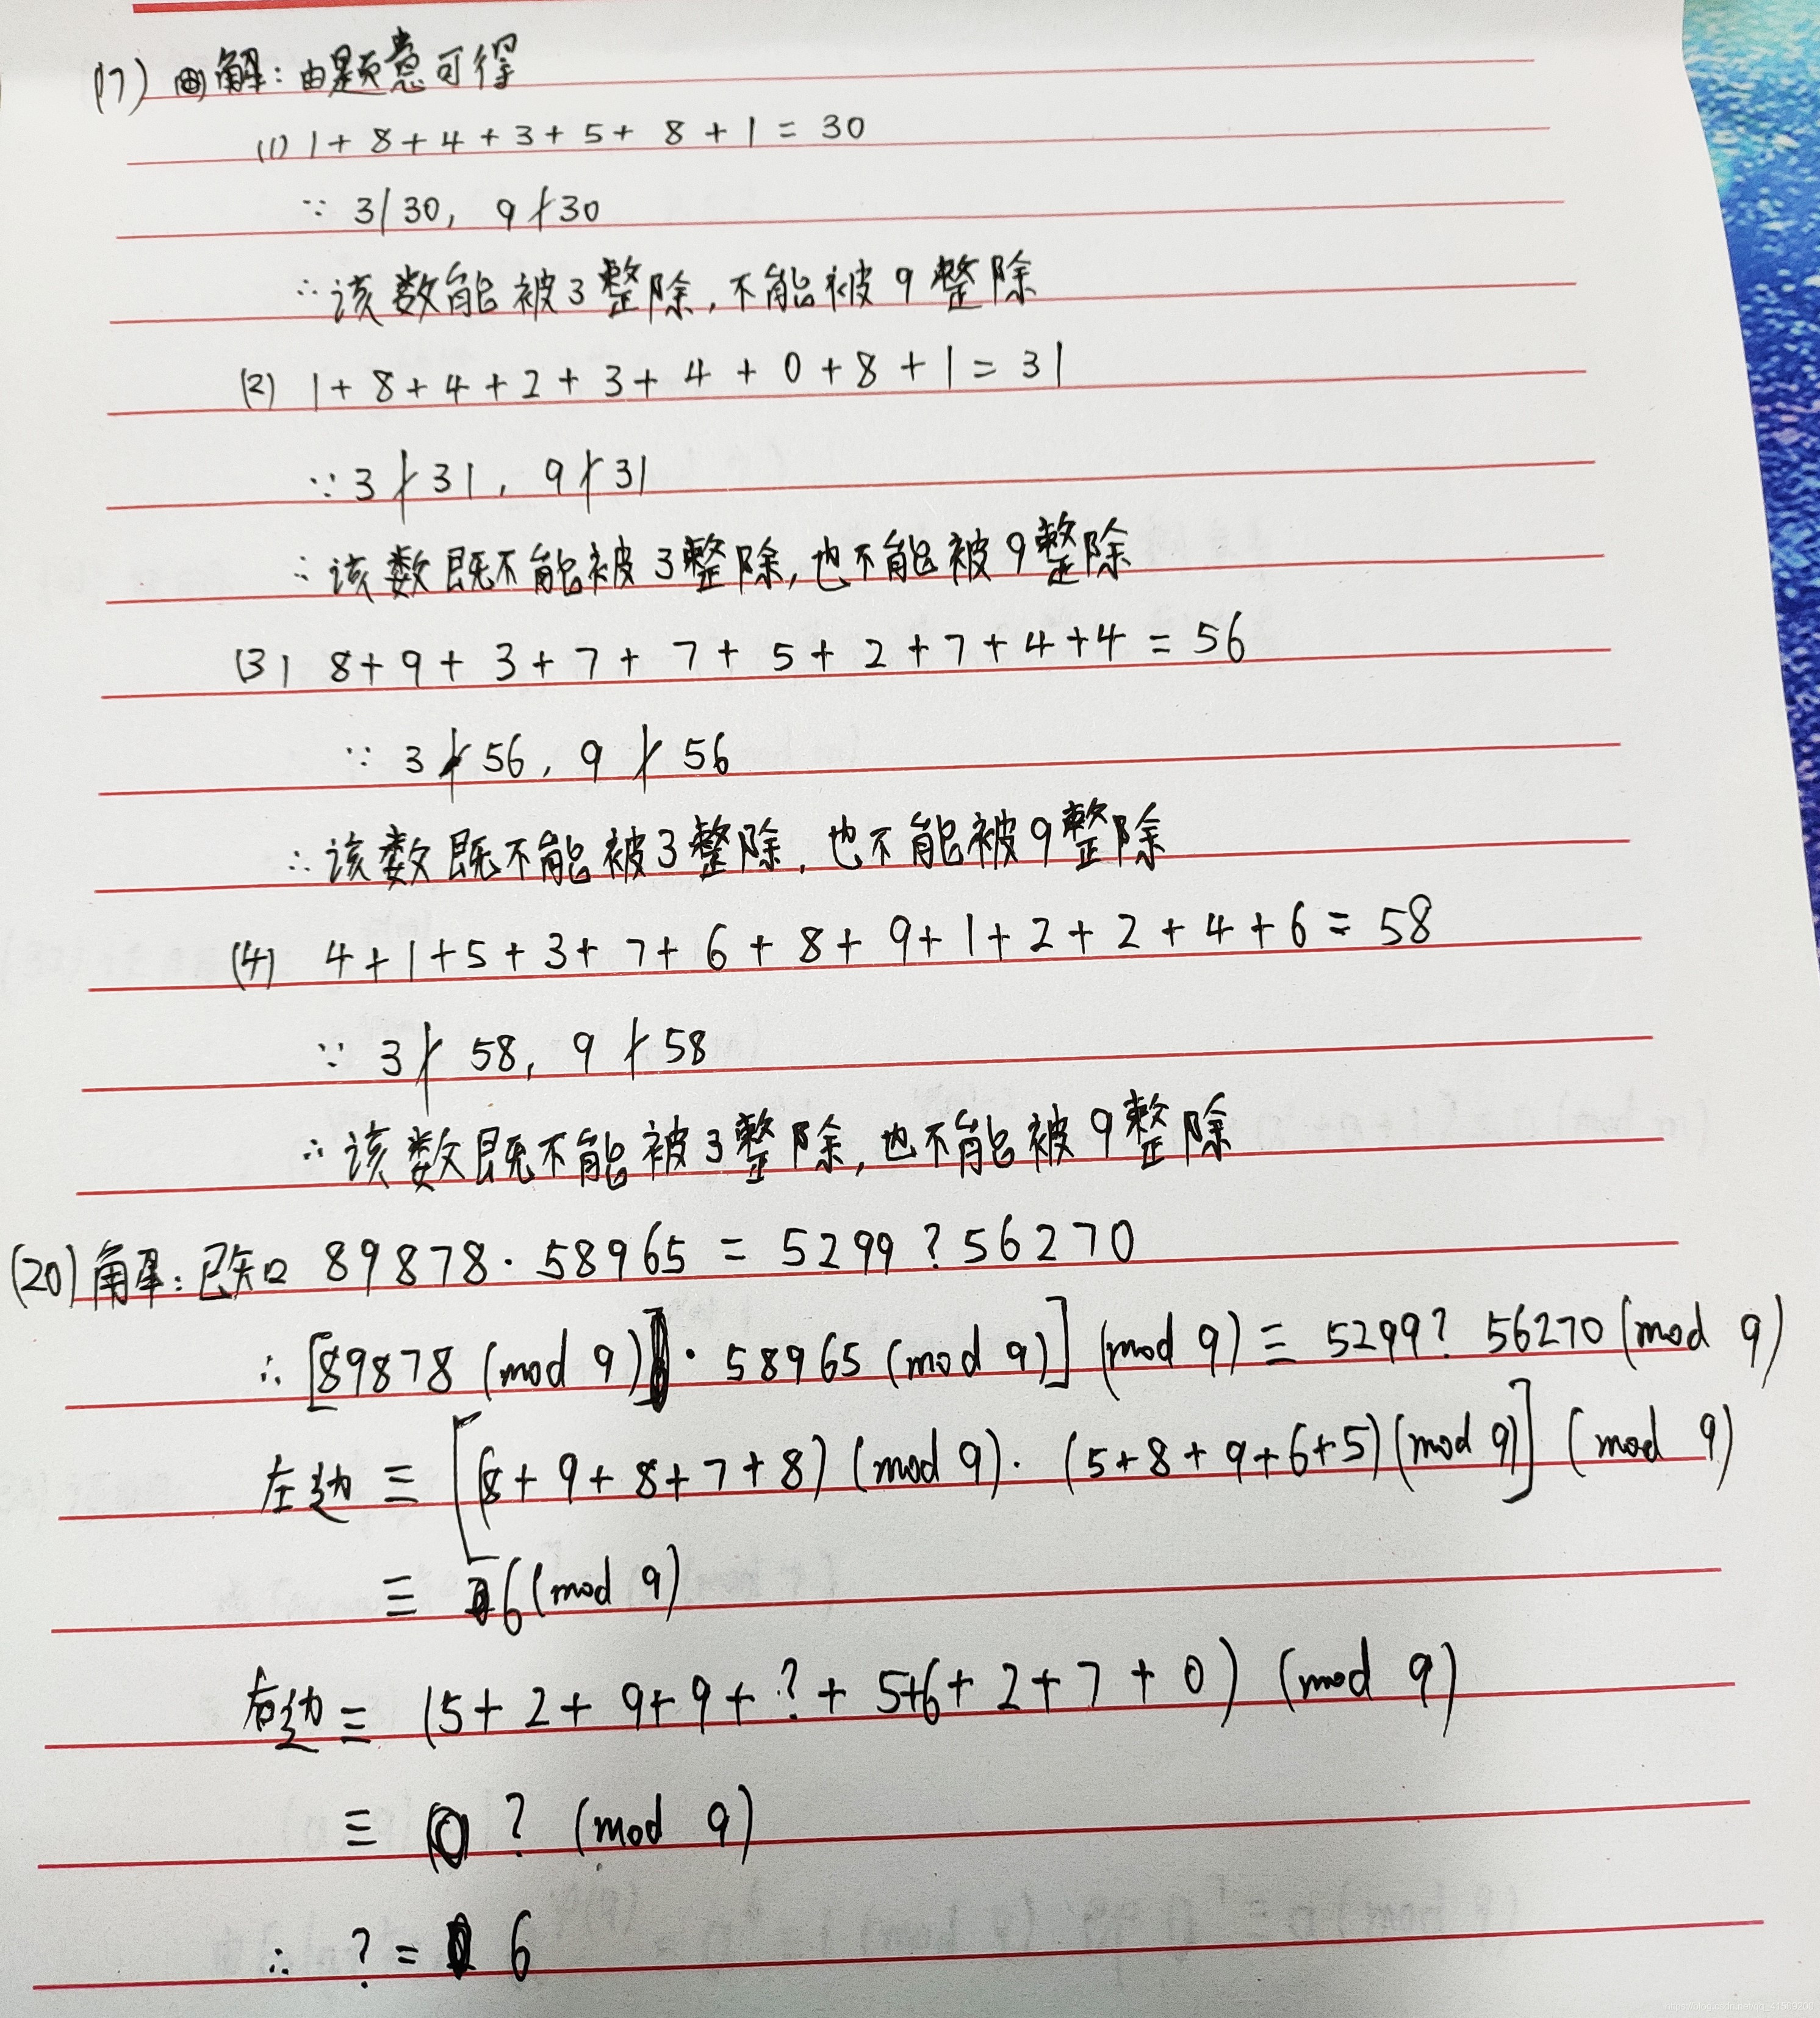 (17) 解：由题意可得
(1) 1+8+4+3+5+8+1=30
∵ 3|30, 9∤30
∴该数能被3整除,不能被9整除
(2) 1+8+4+2+3+4+0+8+1=31
∵3∤31, 9∤31
∴该数既不能被3整除,也不能被9整除
(3) 8+9+3+7+7+5+2+7+4+4=56
∵ 3∤56, 9∤56
∴该数既不能被3整除,也不能被9整除
(4) 4+1+5+3+7+6+8+9+1+2+2+4+6=58
∵ 3∤58, 9∤58
∴该数既不能被3整除,也不能被9整除
(20)解：已知 89878·58965=5299?56270
∴[89878 (mod 9)·58965 (mod 9)] (mod 9)≡5299?56270 (mod 9)
左边≡[(8+9+8+7+8) (mod 9)·(5+8+9+6+5)(mod 9)] (mod 9)
≡6(mod 9)
右边≡(5+2+9+9+?+5+6+2+7+0) (mod 9)
≡ ? (mod 9)
∴ ?=6